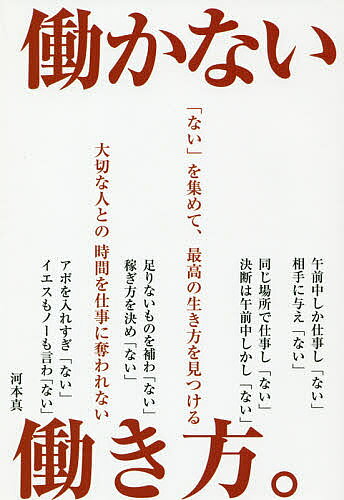 働かない
午前中しか仕事し「ない」
相手に与え「ない」
同じ場所で仕事し「ない」
決断は午前中しかし「ない」
「ない」を集めて、最高の生き方を見つける
足りないものを補わ「ない」
稼ぎ方を決め「ない」
大切な人との 時間を仕事に奪われない
アポを入れすぎ「ない」
イエスもノーも言わ「ない」
河本真
働き方。